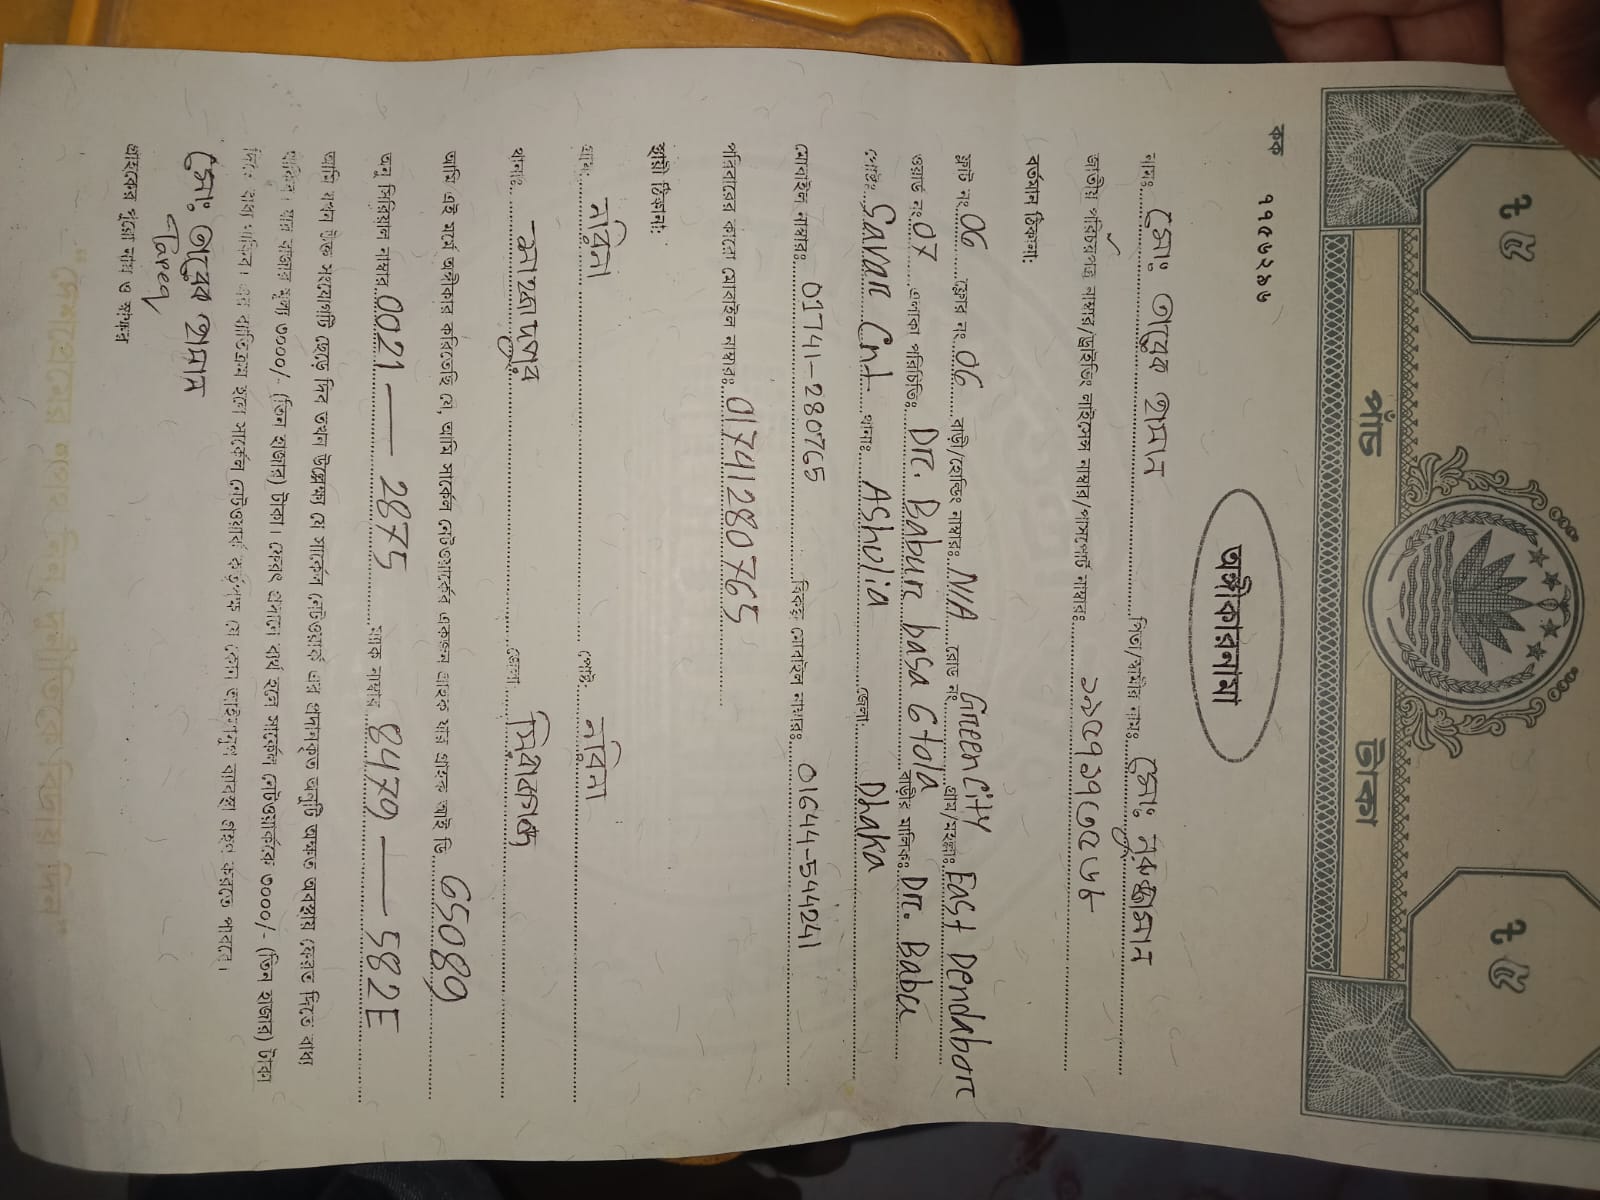 ৳ ৫ ৳ ৫
পাঁচ টাকা
কক ৭৭৫৬২৯৬
অঙ্গীকারনামা
নামঃ মোঃ তায়েক হাসান পিতা/স্বামীর নামঃ মোঃ
জাতীয় পরিচয়পত্র নাম্বার/ড্রাইভিং লাইসেন্স নাম্বার/পাসপোর্ট নাম্বারঃ
বর্তমান ঠিকানা:
ফ্লাট নং 06 ফ্লোর নং 06 বাড়ী/হোল্ডিং নাম্বারঃ N/A রোড নং Green City গ্রাম/মহল্লাঃ East Dendabor
ওয়ার্ড নং 07 এলাকা পরিচিতিঃ Dr. Babur basa 6 tola বাড়ীর মালিকঃ Dr. Babu
পোষ্টঃ Savar Cnt থানাঃ Asholia জেলা: Dhaka
মোবাইল নাম্বারঃ 01741-280765 বিকল্প মোবাইল নাম্বারঃ 01644-544241
পরিবারের কারো মোবাইল নাম্বারঃ 01741280765
স্থায়ী ঠিকানা:
গ্রাম: পোষ্ট:
থানাঃ জেলা
আমি এই মর্মে অঙ্গীকার করিতেছি যে, আমি সার্কেল নেটওয়ার্কের একজন গ্রাহক যার গ্রাহক আই ডি 65089
অনু সিরিয়াল নাম্বার 0021 — 2875 ম্যাক নাম্বার 8479 — 582E
আমি যখন উক্ত সংযোগটি ছেড়ে দিব তখন উল্লেখ্য যে সার্কেল নেটওয়ার্ক এর প্রদানকৃত অনুটি অক্ষত অবস্থায় ফেরত দিতে বাধ্য
থাকিব। যার বাজার মূল্য ৩০০০/- (তিন হাজার) টাকা। ফেরৎ প্রদানে ব্যর্থ হলে সার্কেল নেটওয়ার্ককে ৩০০০/- (তিন হাজার) টাকা
দিতে বাধ্য থাকিব। এর ব্যতিক্রম হলে সার্কেল নেটওয়ার্ক কর্তৃপক্ষ যে কোন আইনানুগ ব্যবস্থা গ্রহণ করতে পারবে।
মোঃ তায়েক হাসান
Tareq
গ্রাহকের পুরো নাম ও স্বাক্ষর